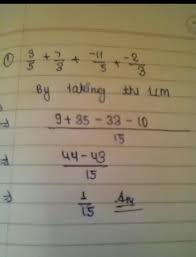 ① 3/5 + 7/3 + -11/5 + -2/3
By taking the LCM
⇒ 9 + 35 - 33 - 10 / 15
⇒ 44 - 43 / 15
⇒ 1/15 Ans